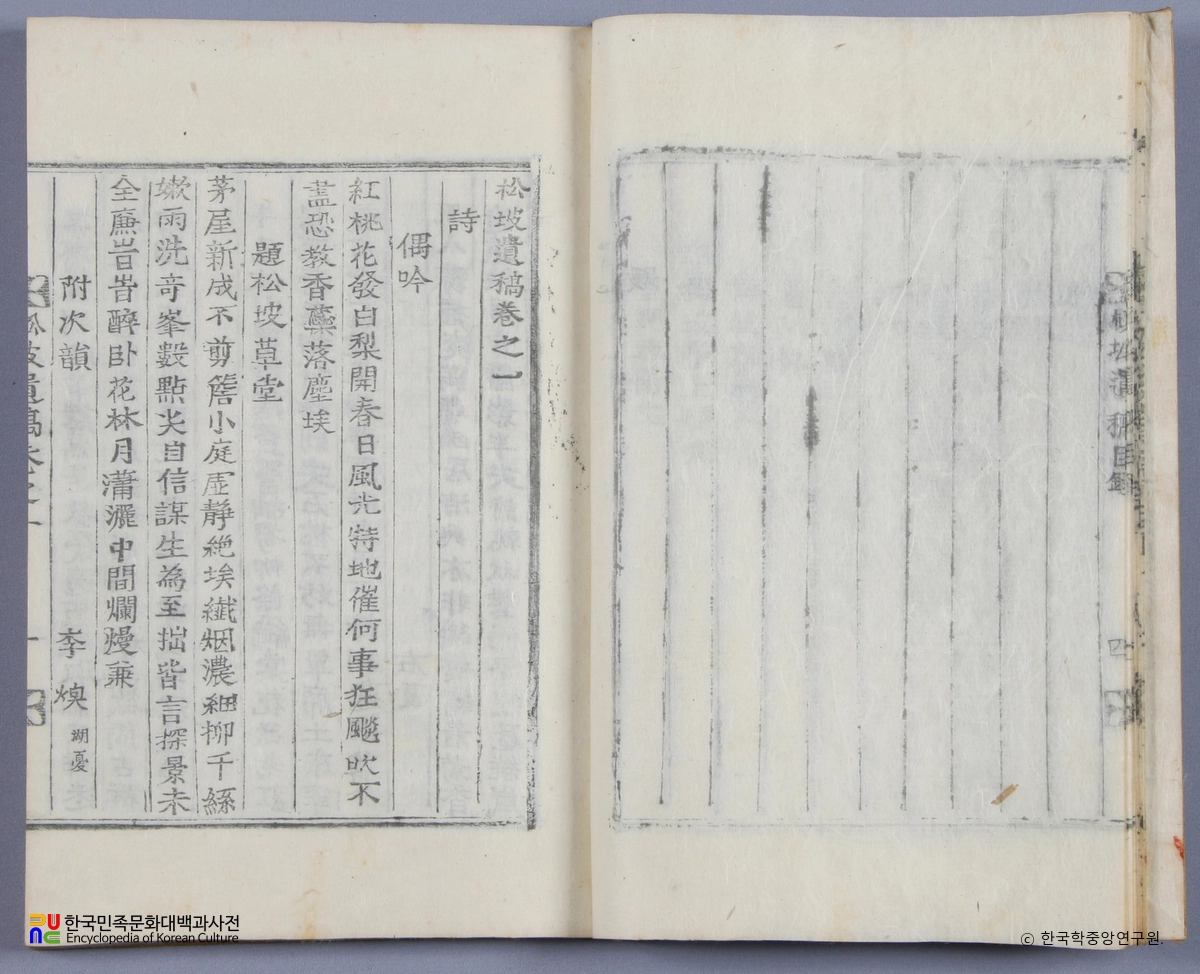 松坡遺稿卷之一
詩
偶吟
紅桃花發白梨開春日風光特地催何事狂飈吹不
盡恐教香蘂落塵埃
題松坡草堂
茅屋新成不剪簷小庭虛靜絶埃纖烟濃細柳千絲
嫰雨洗奇峯數點尖自信謀生為至拙皆言探景未
全廉旹旹醉卧花林月瀟灑中間爛熳兼
附次韻 李煥 湖憂
松坡遺稿卷之一
一
松坡遺稿目錄
四
한국민족문화대백과사전
Encyclopedia of Korean Culture
© 한국학중앙연구원.